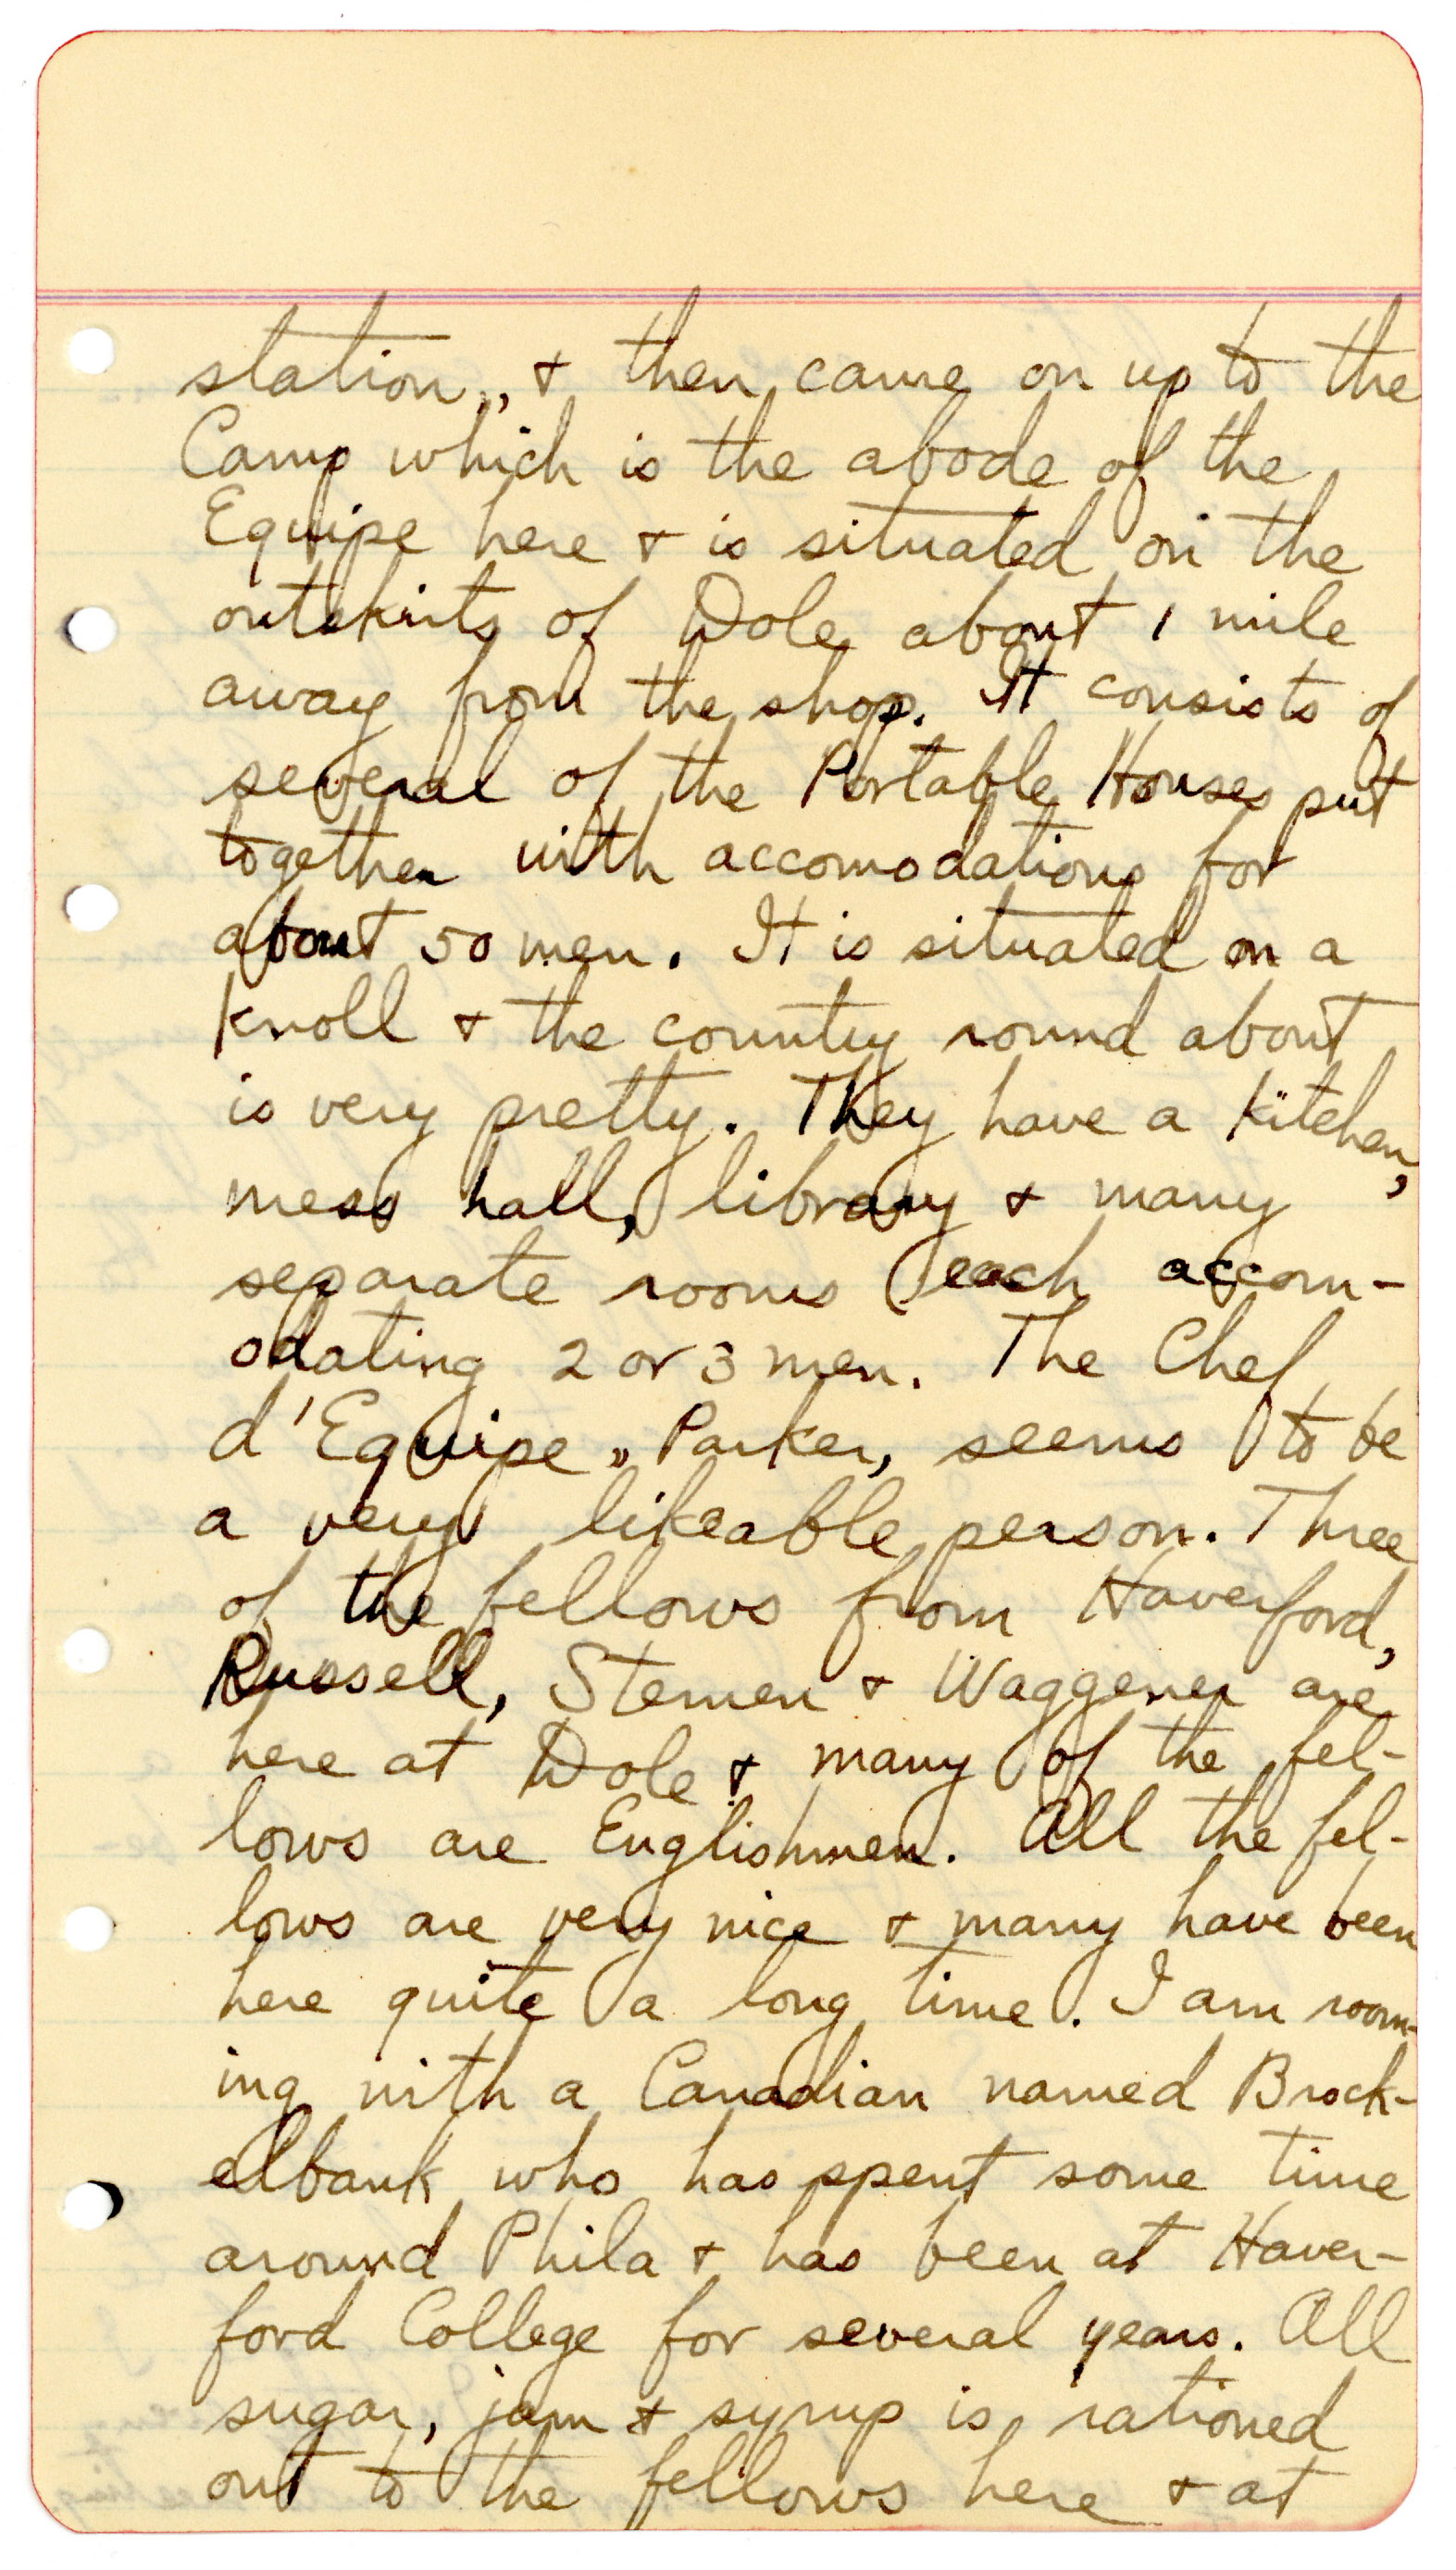 station, & then came on up to the
Camp which is the abode of the
Equipe here & is situated on the
outskirts of Dole about 1 mile
away from the shop. It consists of
several of the Portable Houses put
together with accomodations for
about 50 men. It is situated on a
knoll & the country round about
is very pretty. They have a kitchen,
mess hall, library & many
separate rooms each accom-
odating 2 or 3 men. The Chef
d'Equipe, Parker, seems to be
a very likeable person. Three
of the fellows from Haverford,
Russell, Stemen & Waggener are
here at Dole & many of the fel-
lows are Englishmen. All the fel-
lows are very nice & many have been
here quite a long time. I am room-
ing with a Canadian named Brock-
elbank who has spent some time
around Phila & has been at Haver-
ford College for several years. All
sugar, jam & syrup is rationed
out to the fellows here & at